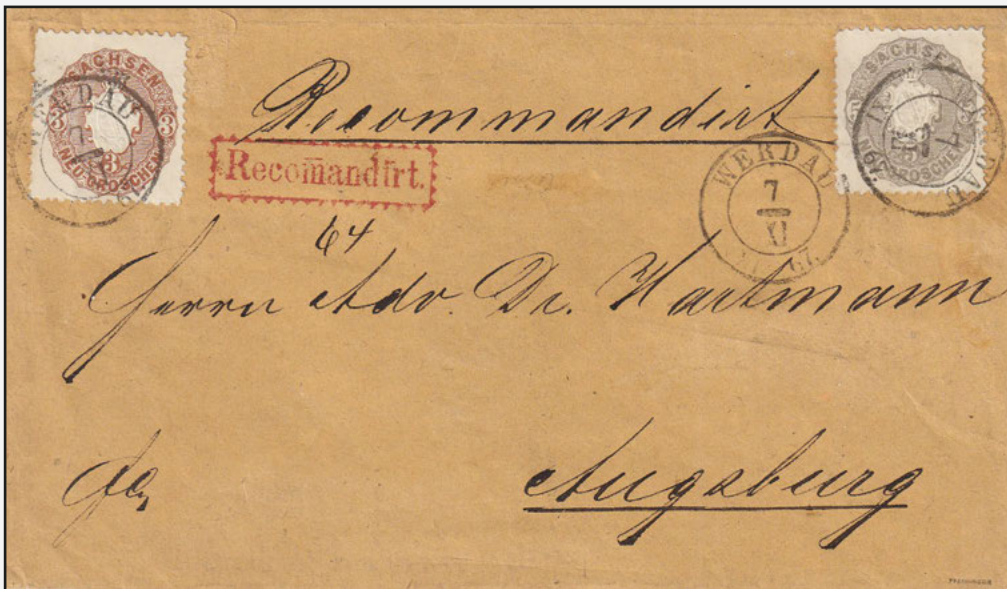 SACHSEN
3 3
3
NEU-GROSCHEN
WERDAU
Recommandirt
Recomandirt.
SACHSEN
NEU-GROSCHEN
WERDAU
7
XI
67.
64
Herrn Adv. Dr. Hartmann
Augsburg